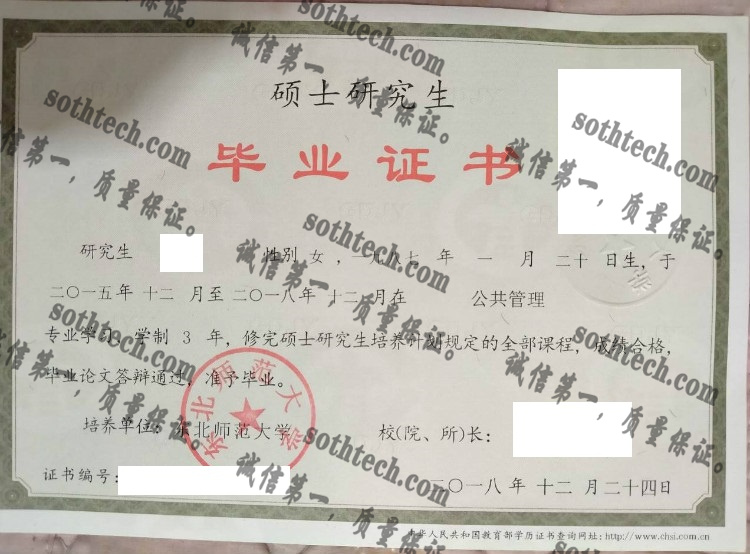 硕士研究生
毕业证书
研究生 性别 女，一九八七 年 一 月 二十 日生，于
二〇一五年 十二 月至 二〇一八年 十二 月在 公共管理
专业学习，学制 3 年，修完硕士研究生培养计划规定的全部课程，成绩合格，
毕业论文答辩通过，准予毕业。
培养单位：东北师范大学 校(院、所)长：
证书编号：
二〇一八 年 十二 月二十四日
中华人民共和国教育部学历证书查询网址：http://www.chsi.com.cn
东北师范大学
sothtech.com
诚信第一，质量保证。
sothtech.com
诚信第一，质量保证。
sothtech.com
诚信第一，质量保证。
sothtech.com
诚信第一，质量保证。
sothtech.com
诚信第一，质量保证。
sothtech.com
诚信第一，质量保证。
sothtech.com
诚信第一，质量保证。
sothtech.com
诚信第一，质量保证。
sothtech.com
诚信第一，质量保证。